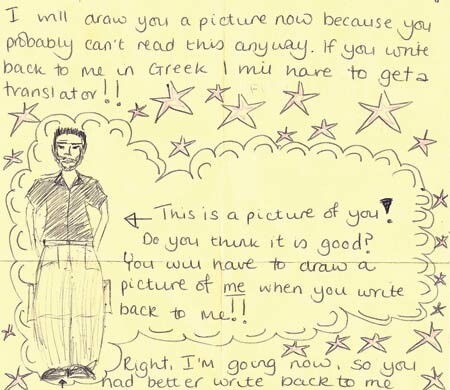 I will draw you a picture now because you
probably can't read this anyway. If you write
back to me in Greek I will have to get a
translator!!
This is a picture of you!
Do you think it is good?
You will have to draw a
picture of me when you write
back to me!!
Right, I'm going now, so you
had better write back to me